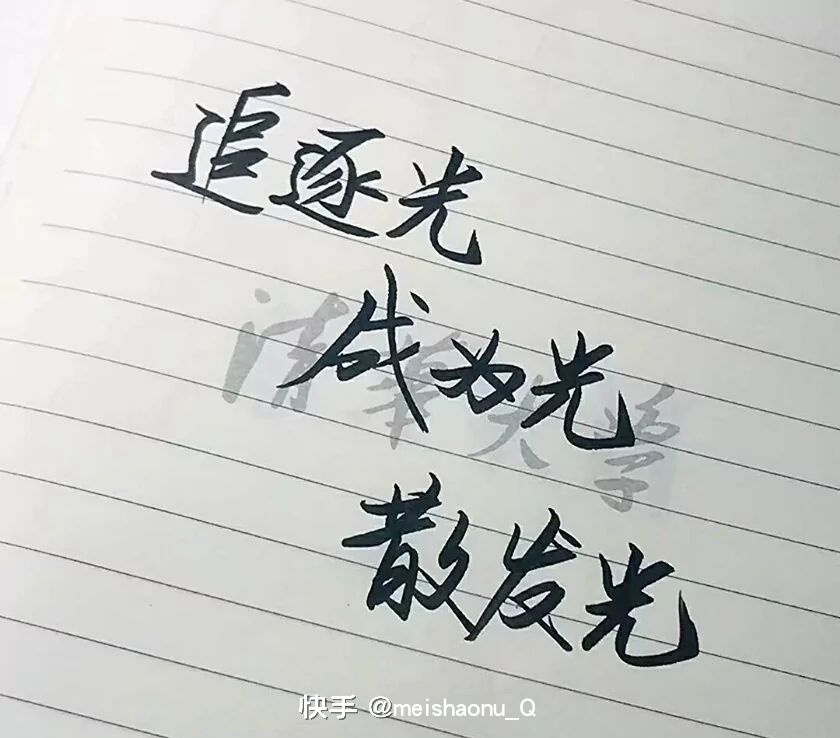 追逐光
成为光
清華大学
散发光
快手 @meishaonu_Q